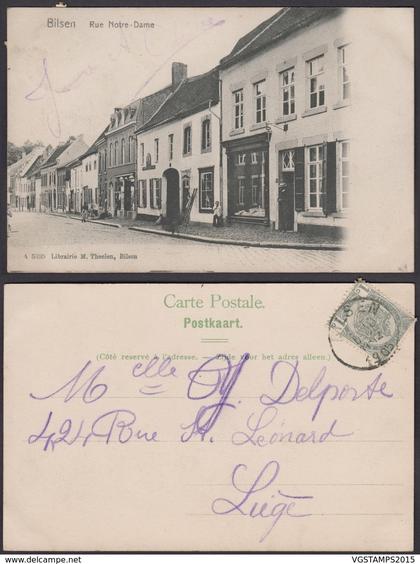 Bilsen Rue Notre-Dame
A 5335 Librairie M. Theelen, Bilsen
Carte Postale.
Postkaart.
(Côté reservé à l'adresse. — Zijde voor het adres alleen.)
Melle Delporte
424 Rue St. Léonard
Liège
VGSTAMPS2015